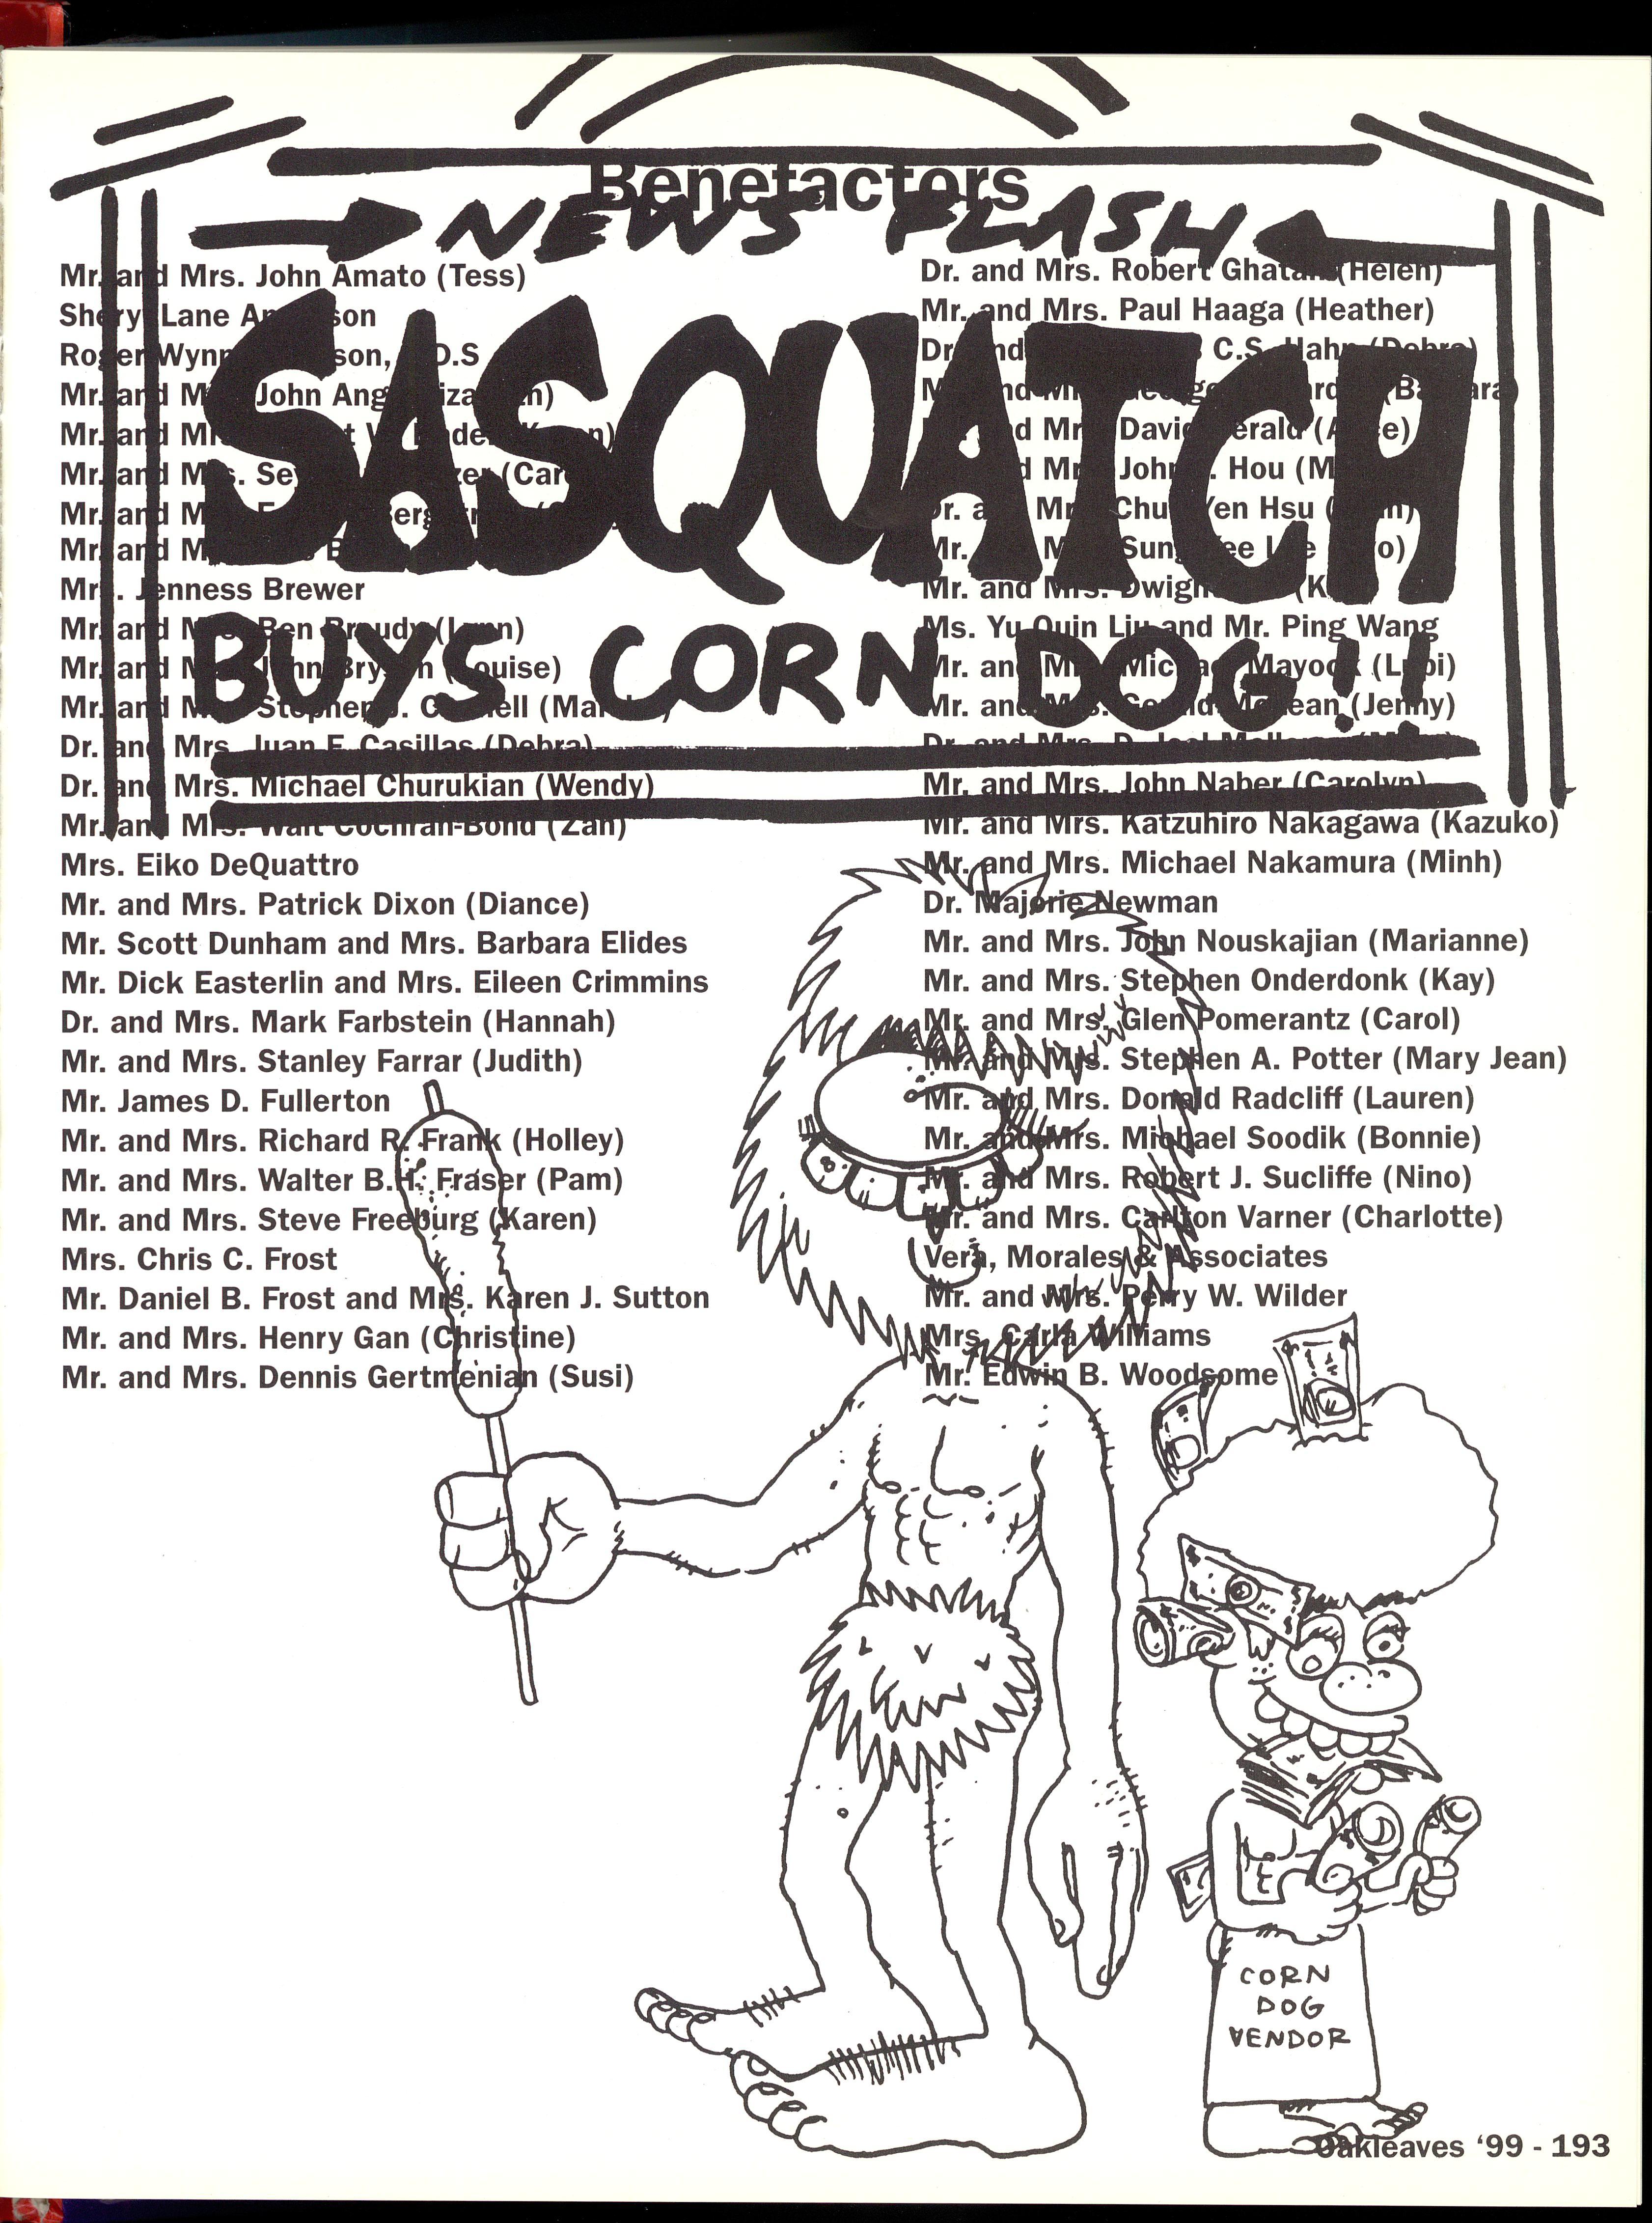 Benefactors
NEWS FLASH
SASQUATCH
BUYS CORN DOG!!
Mr. and Mrs. John Amato (Tess)
Lane
Roger
Mr. and John
Mr. and
Mr. and
Mr. and
Mr. and
Mrs. Jenness Brewer
Mr. and Mrs. Ben Broudy (Lynn)
Mr. and
Mr. and Stephen J.
Dr. and Mrs. Juan F. Casillas (Debra)
Dr. and Mrs. Michael Churukian (Wendy)
Mr. and Mrs. Walt Cochran-Bond (Zan)
Mrs. Eiko DeQuattro
Mr. and Mrs. Patrick Dixon (Diance)
Mr. Scott Dunham and Mrs. Barbara Elides
Mr. Dick Easterlin and Mrs. Eileen Crimmins
Dr. and Mrs. Mark Farbstein (Hannah)
Mr. and Mrs. Stanley Farrar (Judith)
Mr. James D. Fullerton
Mr. and Mrs. Richard R. Frank (Holley)
Mr. and Mrs. Walter B.H. Fraser (Pam)
Mr. and Mrs. Steve Freeburg (Karen)
Mrs. Chris C. Frost
Mr. Daniel B. Frost and Mrs. Karen J. Sutton
Mr. and Mrs. Henry Gan (Christine)
Mr. and Mrs. Dennis Gertmenian (Susi)
Dr. and Mrs. Robert (Helen)
Mr. and Mrs. Paul Haaga (Heather)
Dr. and C.S. Hahn (Debra)
and (Barbara)
and David
John Hou
Dr.
Mr. Sung
Mr. and Mrs.
Ms. Yu Quin Liu and Mr. Ping Wang
Mr. and Mrs. Michael Mayock (Lupi)
Mr. and Mrs. Gerald McLean (Jenny)
Dr. and Mrs. D. Joel
Mr. and Mrs. John Naber (Carolyn)
Mr. and Mrs. Katzuhiro Nakagawa (Kazuko)
Mr. and Mrs. Michael Nakamura (Minh)
Dr. Majorie Newman
Mr. and Mrs. John Nouskajian (Marianne)
Mr. and Mrs. Stephen Onderdonk (Kay)
Mr. and Mrs. Glen Pomerantz (Carol)
Mr. and Mrs. Stephen A. Potter (Mary Jean)
Mr. and Mrs. Donald Radcliff (Lauren)
Mr. and Mrs. Michael Soodik (Bonnie)
Mr. and Mrs. Robert J. Sucliffe (Nino)
Mr. and Mrs. Carlton Varner (Charlotte)
Vera, Morales & Associates
Mr. and Mrs. Perry W. Wilder
Mrs. Carla Williams
Mr. Edwin B. Woodsome
CORN
DOG
VENDOR
Oakleaves '99 - 193